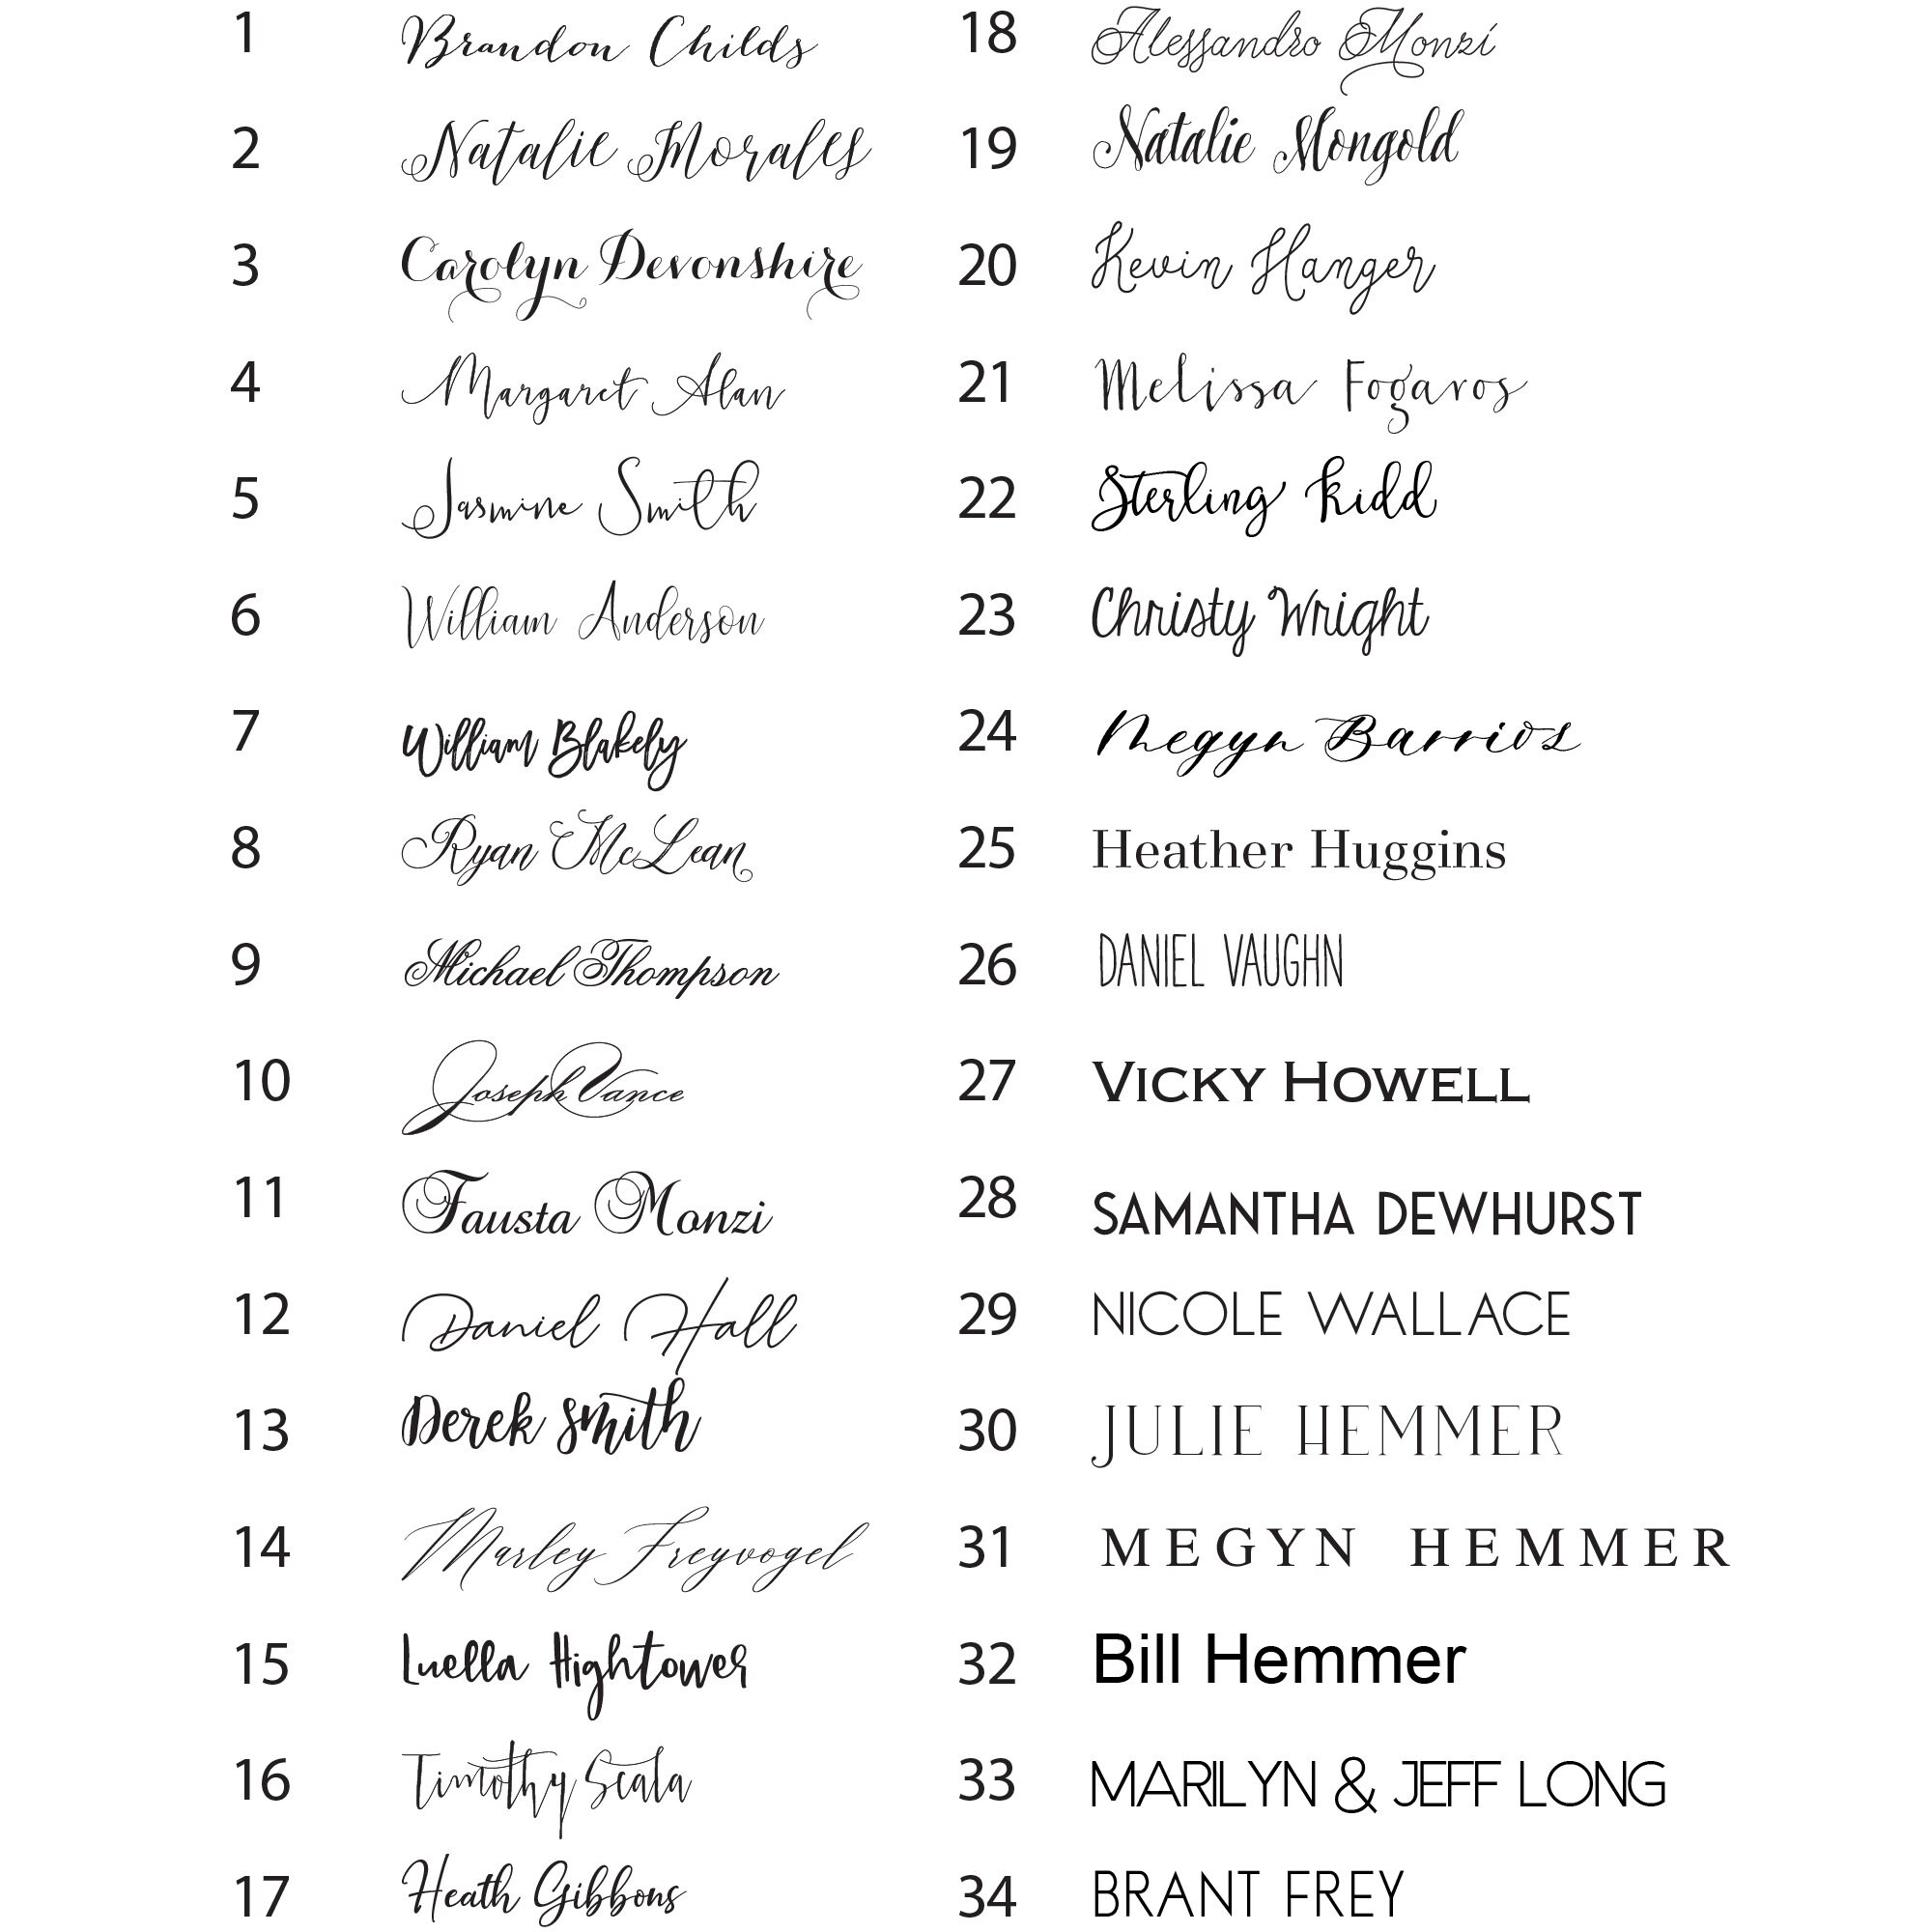 1 Brandon Childs
2 Natalie Morales
3 Carolyn Devonshire
4 Margaret Alan
5 Jasmine Smith
6 William Anderson
7 William Blakely
8 Ryan McLean
9 Michael Thompson
10 Joseph Vance
11 Fausta Monzi
12 Daniel Hall
13 Derek Smith
14 Marley Freyvogel
15 Luella Hightower
16 Timothy Scala
17 Heath Gibbons
18 Alessandro Monzi
19 Natalie Mongold
20 Kevin Hanger
21 Melissa Fogaros
22 Sterling Kidd
23 Christy Wright
24 Megyn Barrios
25 Heather Huggins
26 DANIEL VAUGHN
27 VICKY HOWELL
28 SAMANTHA DEWHURST
29 NICOLE WALLACE
30 JULIE HEMMER
31 MEGYN HEMMER
32 Bill Hemmer
33 MARILYN & JEFF LONG
34 BRANT FREY